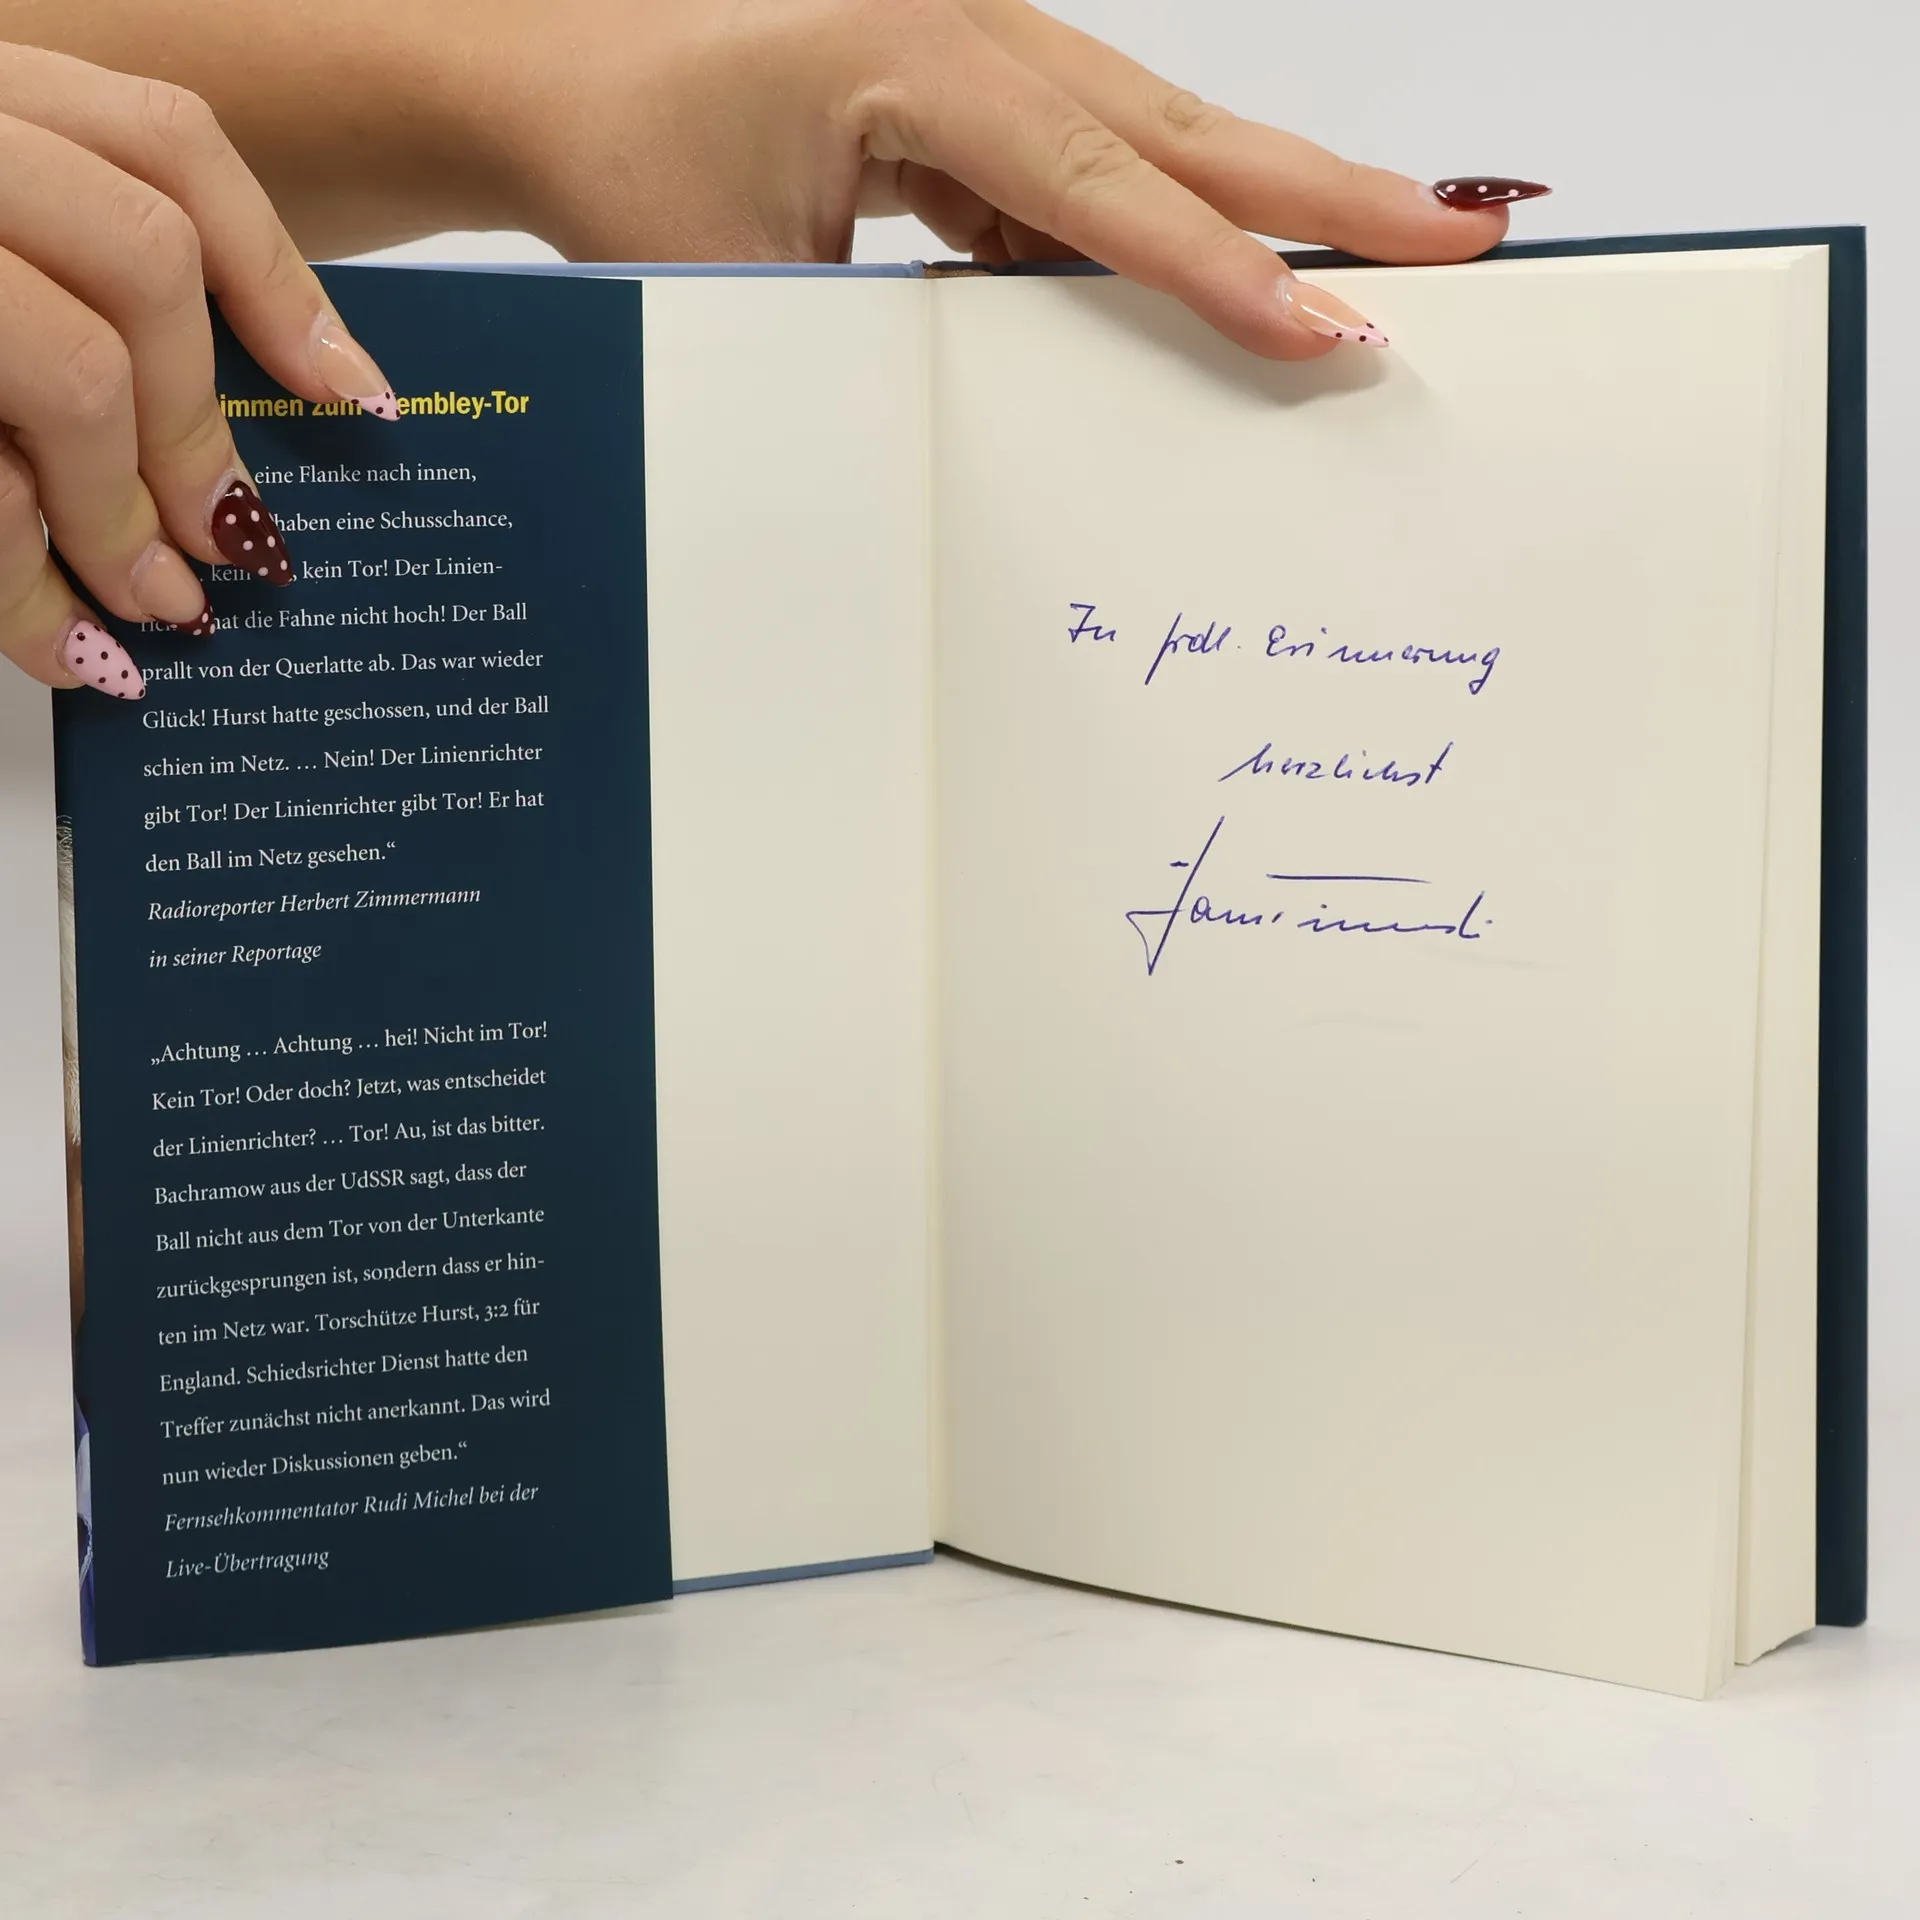 immen zum embley-Tor
eine Flanke nach innen,
haben eine Schusschance,
kein , kein Tor! Der Linien-
hat die Fahne nicht hoch! Der Ball
prallt von der Querlatte ab. Das war wieder
Glück! Hurst hatte geschossen, und der Ball
schien im Netz. … Nein! Der Linienrichter
gibt Tor! Der Linienrichter gibt Tor! Er hat
den Ball im Netz gesehen.“
Radioreporter Herbert Zimmermann
in seiner Reportage
„Achtung … Achtung … hei! Nicht im Tor!
Kein Tor! Oder doch? Jetzt, was entscheidet
der Linienrichter? … Tor! Au, ist das bitter.
Bachramow aus der UdSSR sagt, dass der
Ball nicht aus dem Tor von der Unterkante
zurückgesprungen ist, sondern dass er hin-
ten im Netz war. Torschütze Hurst, 3:2 für
England. Schiedsrichter Dienst hatte den
Treffer zunächst nicht anerkannt. Das wird
nun wieder Diskussionen geben.“
Fernsehkommentator Rudi Michel bei der
Live-Übertragung
Zu frdl. Erinnerung
herzlichst